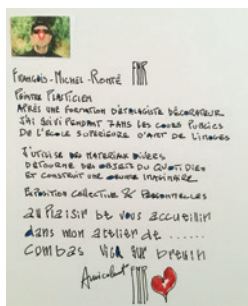 François-Michel-Ronté FMR
Peintre Plasticien
Après une formation d'étalagiste décorateur
J'ai suivi pendant 7 ans les cours publics
de l'école supérieure d'art de Limoges
J'utilise des matériaux divers
détourne des objets du quotidien
et construit une œuvre imaginaire
Exposition collective & personnelles
au plaisir de vous accueillir
dans mon atelier de ......
Combas Vicq sur Breuilh
Amicalement FMR